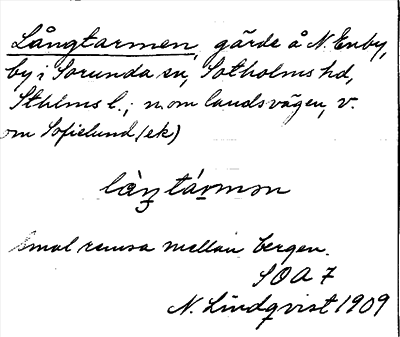 Långtarmen, gärde å N. Enby,
by i Sorunda sn, Sotholms hd,
Sthlms l.; n. om landsvägen, v.
om Sofielund (ek)
làŋtármən
Smal remsa mellan bergen.
SOA 7
N. Lindqvist 1909